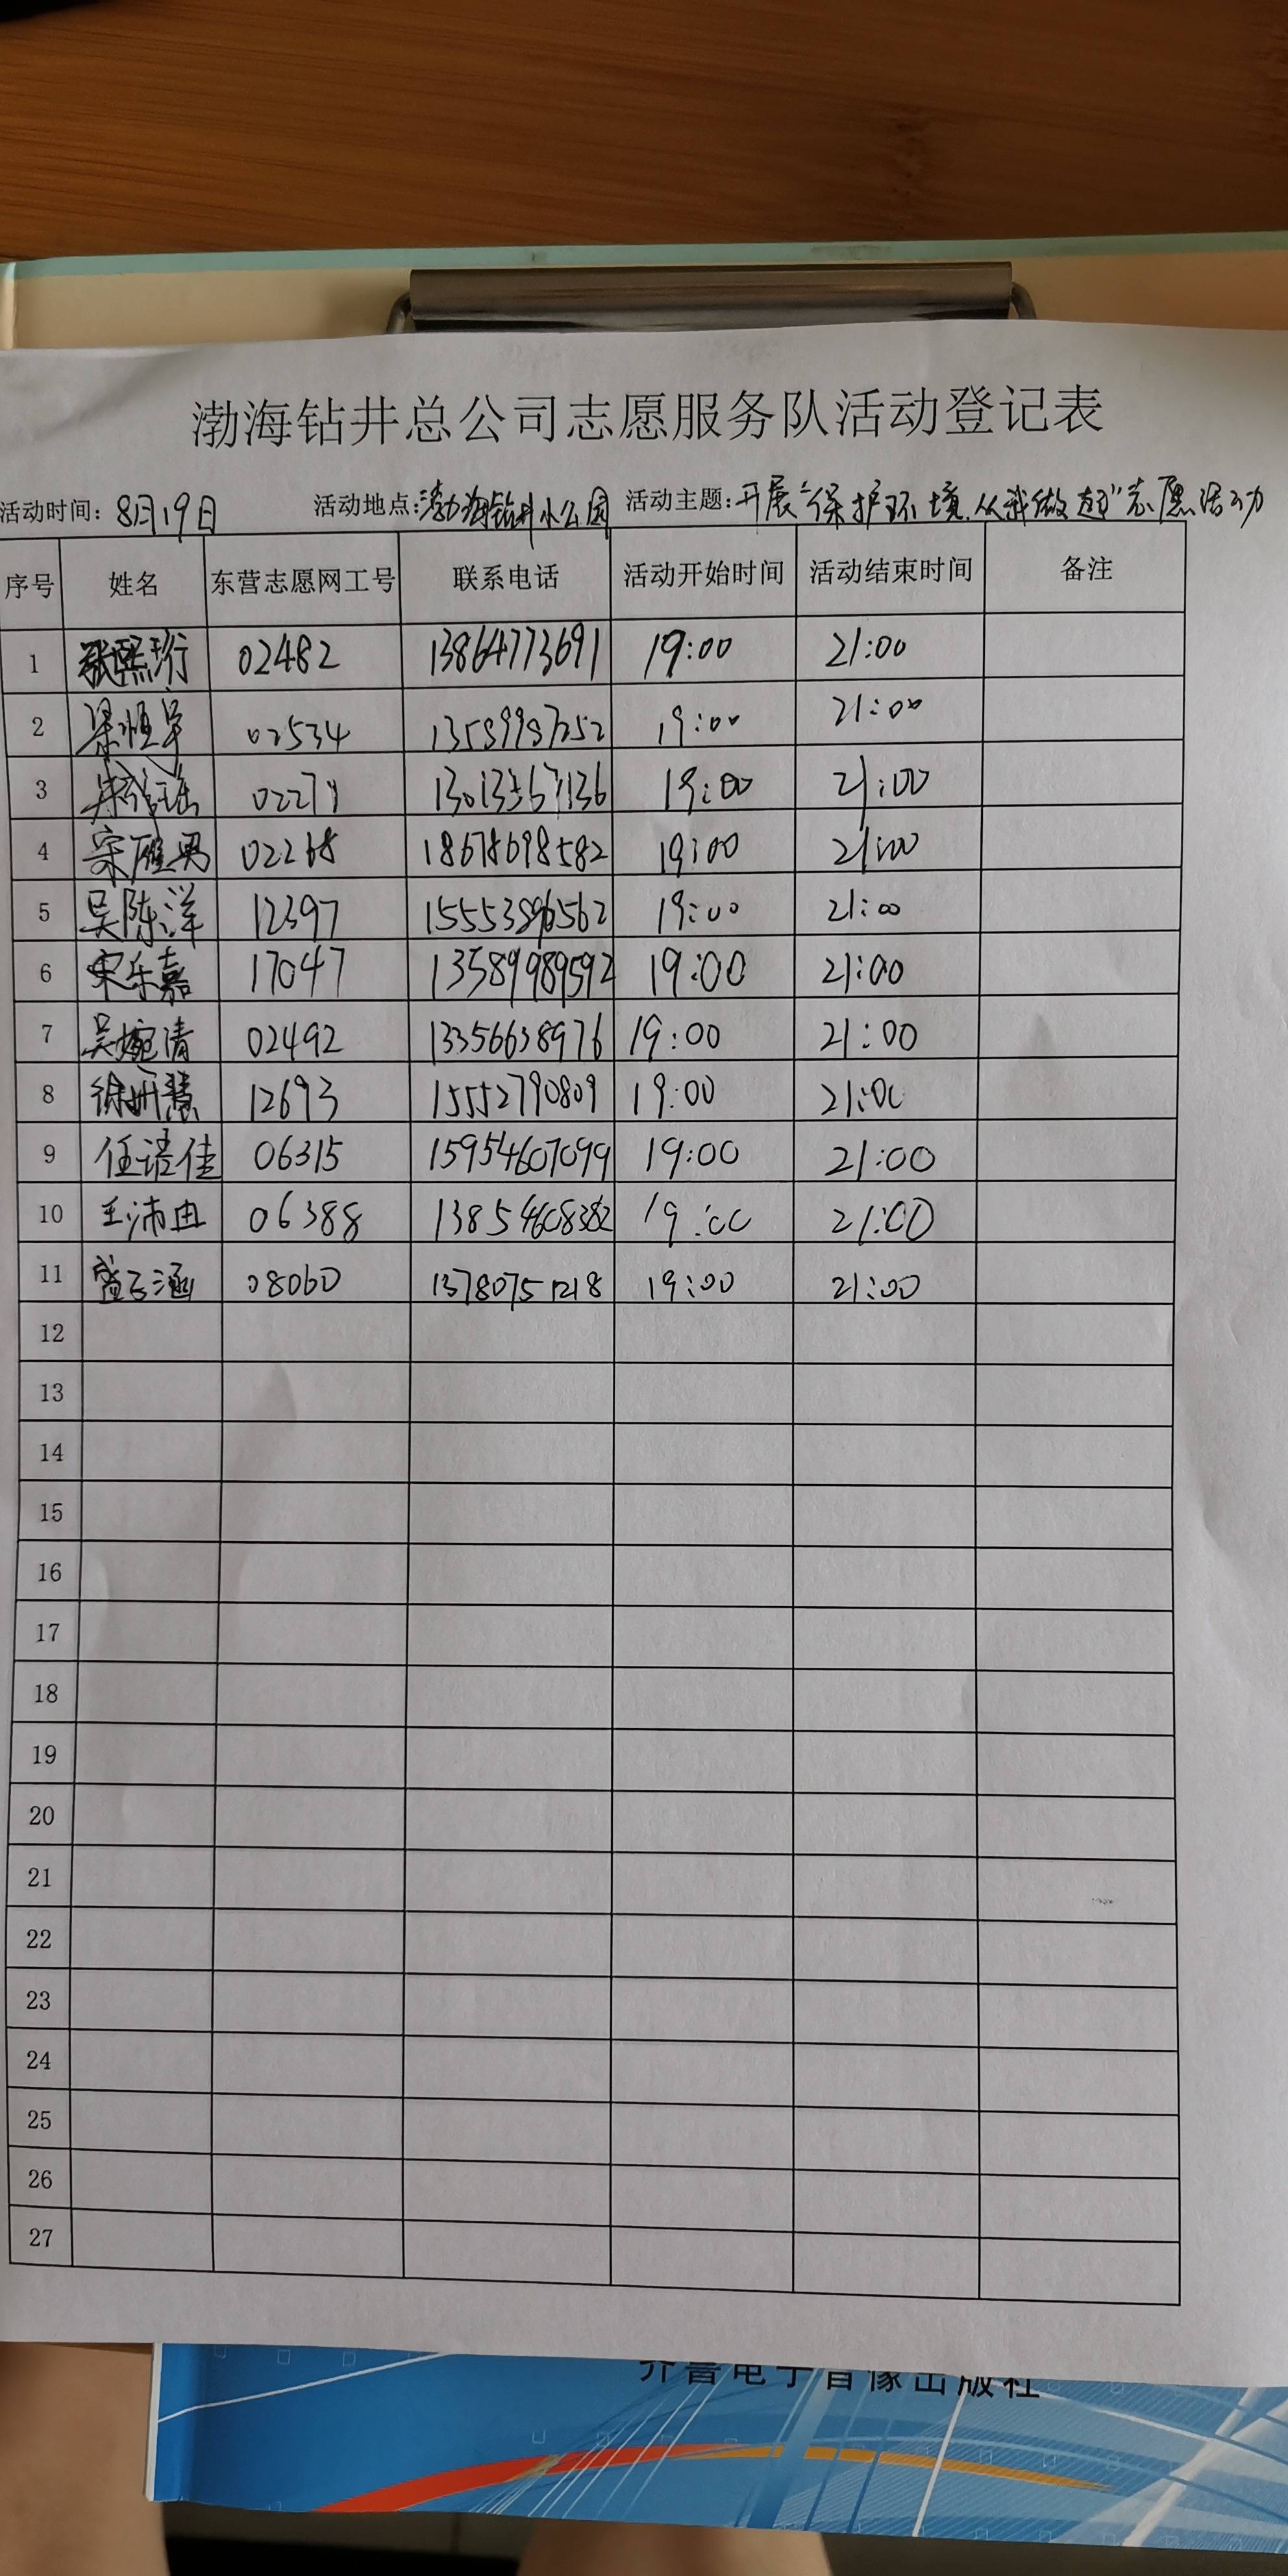 渤海钻井总公司志愿服务队活动登记表
活动时间: 8月19日 活动地点:渤海钻井小公园 活动主题:开展"保护环境.从我做起"志愿活动
序号 姓名 东营志愿网工号 联系电话 活动开始时间 活动结束时间 备注
1 张熙珩 02482 13864773691 19:00 21:00
2 梁恒宇 02534 13589987252 19:00 21:00
3 19:00 21:00
4 宋雁男 02268 18678698582 19:00 21:00
5 吴陈洋 12397 19:00 21:00
6 宋乐嘉 17047 13589989592 19:00 21:00
7 吴婉清 02492 13356638976 19:00 21:00
8 徐妍慧 12693 15552790809 19:00 21:00
9 任诺佳 06315 15954607099 19:00 21:00
10 王沛由 06388 13854608382 19:00 21:00
11 盛子涵 08060 13780751218 19:00 21:00
12
13
14
15
16
17
18
19
20
21
22
23
24
25
26
27
齐鲁电子音像出版社